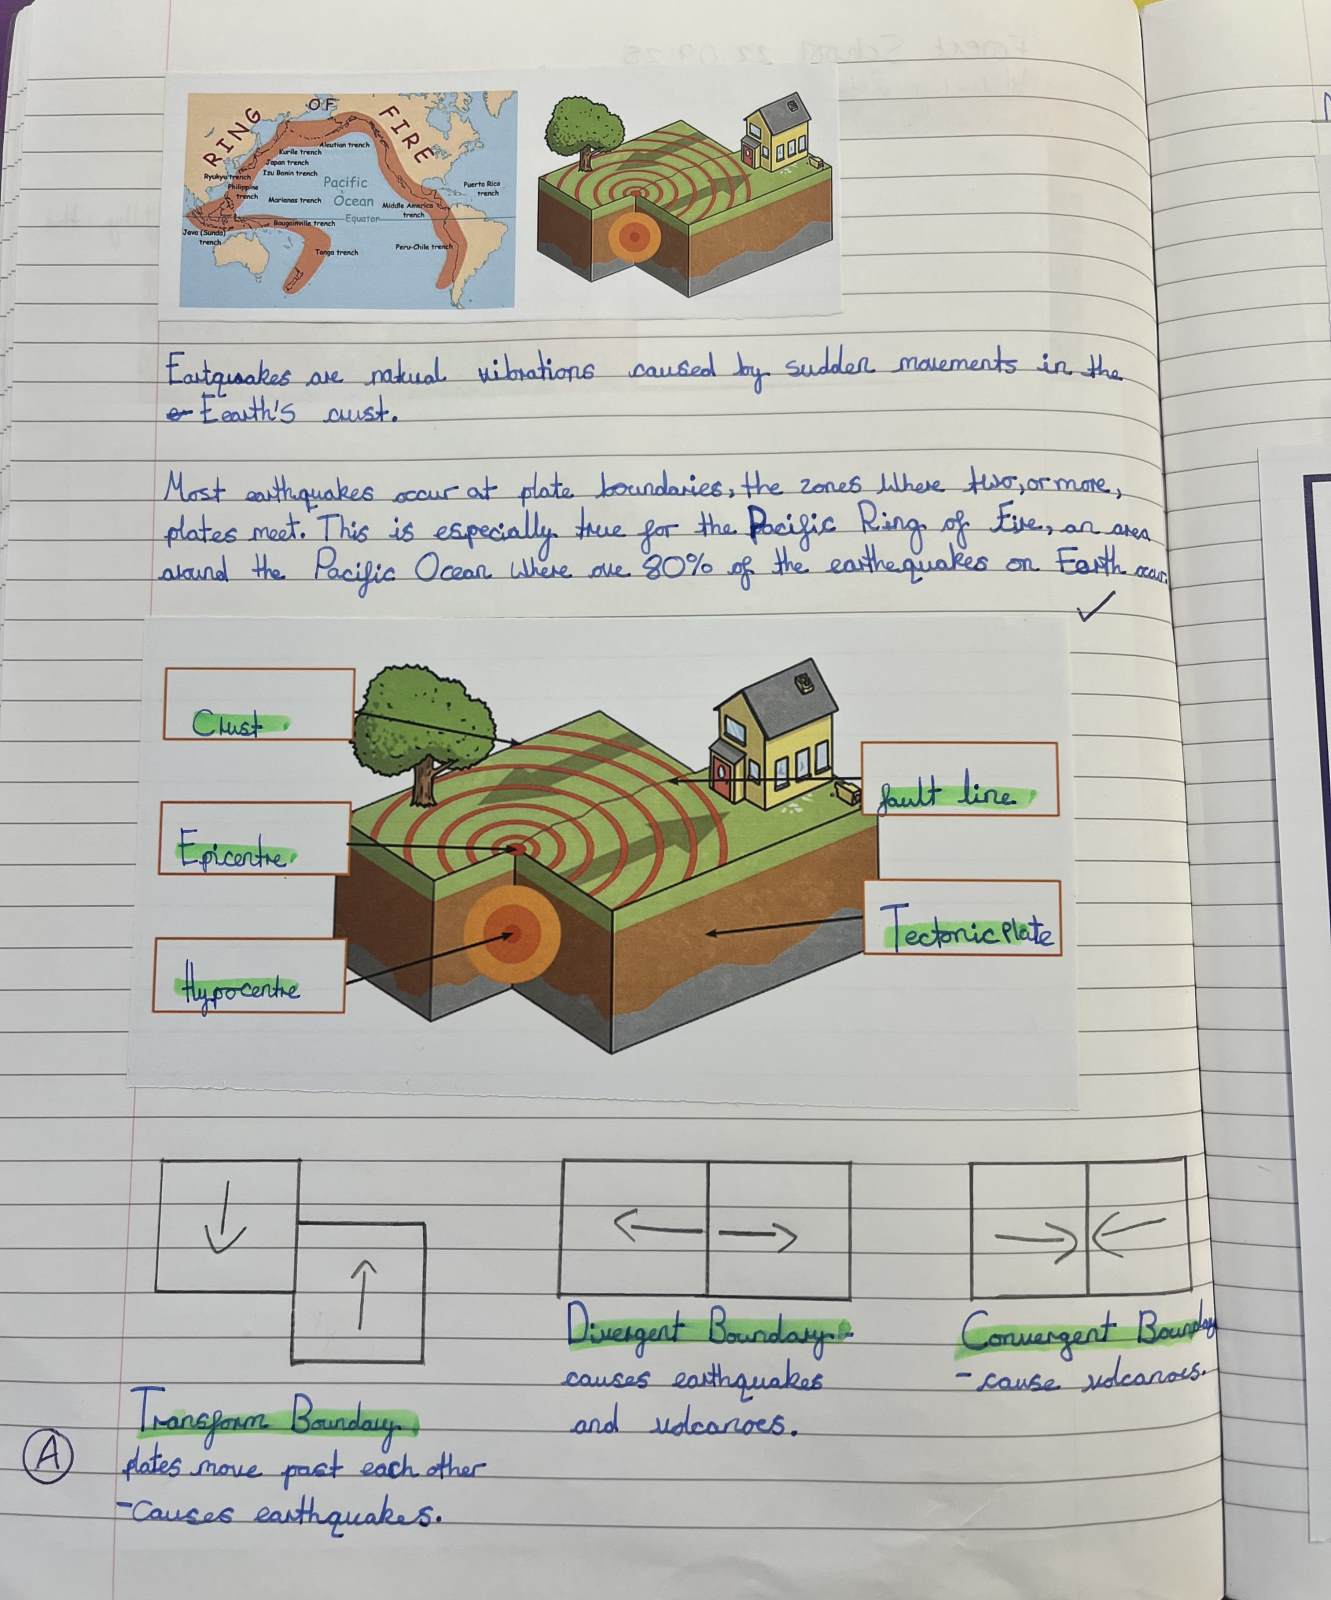 RING OF FIRE
Aleutian trench
Kurile trench
Japan trench
Izu Bonin trench
Ryukyu trench
Philippine
trench
Marianas trench
Pacific
Ocean
Equator
Middle America
trench
Puerto Rico
trench
Bougainville trench
Java (Sunda)
trench
Tonga trench
Peru-Chile trench
Eartquakes are natural vibrations caused by sudden movements in the
e Eearth's crust.
Most earthquakes occur at plate boundaries, the zones where two, or more,
plates meet. This is especially true for the Pacific Ring of Fire, an area
around the Pacific Ocean where ove 80% of the earthequakes on Earth occur.
Crust
fault line
Epicentre
Tectonic Plate
Hypocentre
Divergent Boundary-
causes earthquakes
and volcanoes.
Convergent Boundary
- cause volcanoes.
Transform Boundary
plates move past each other
- causes earthquakes.
A